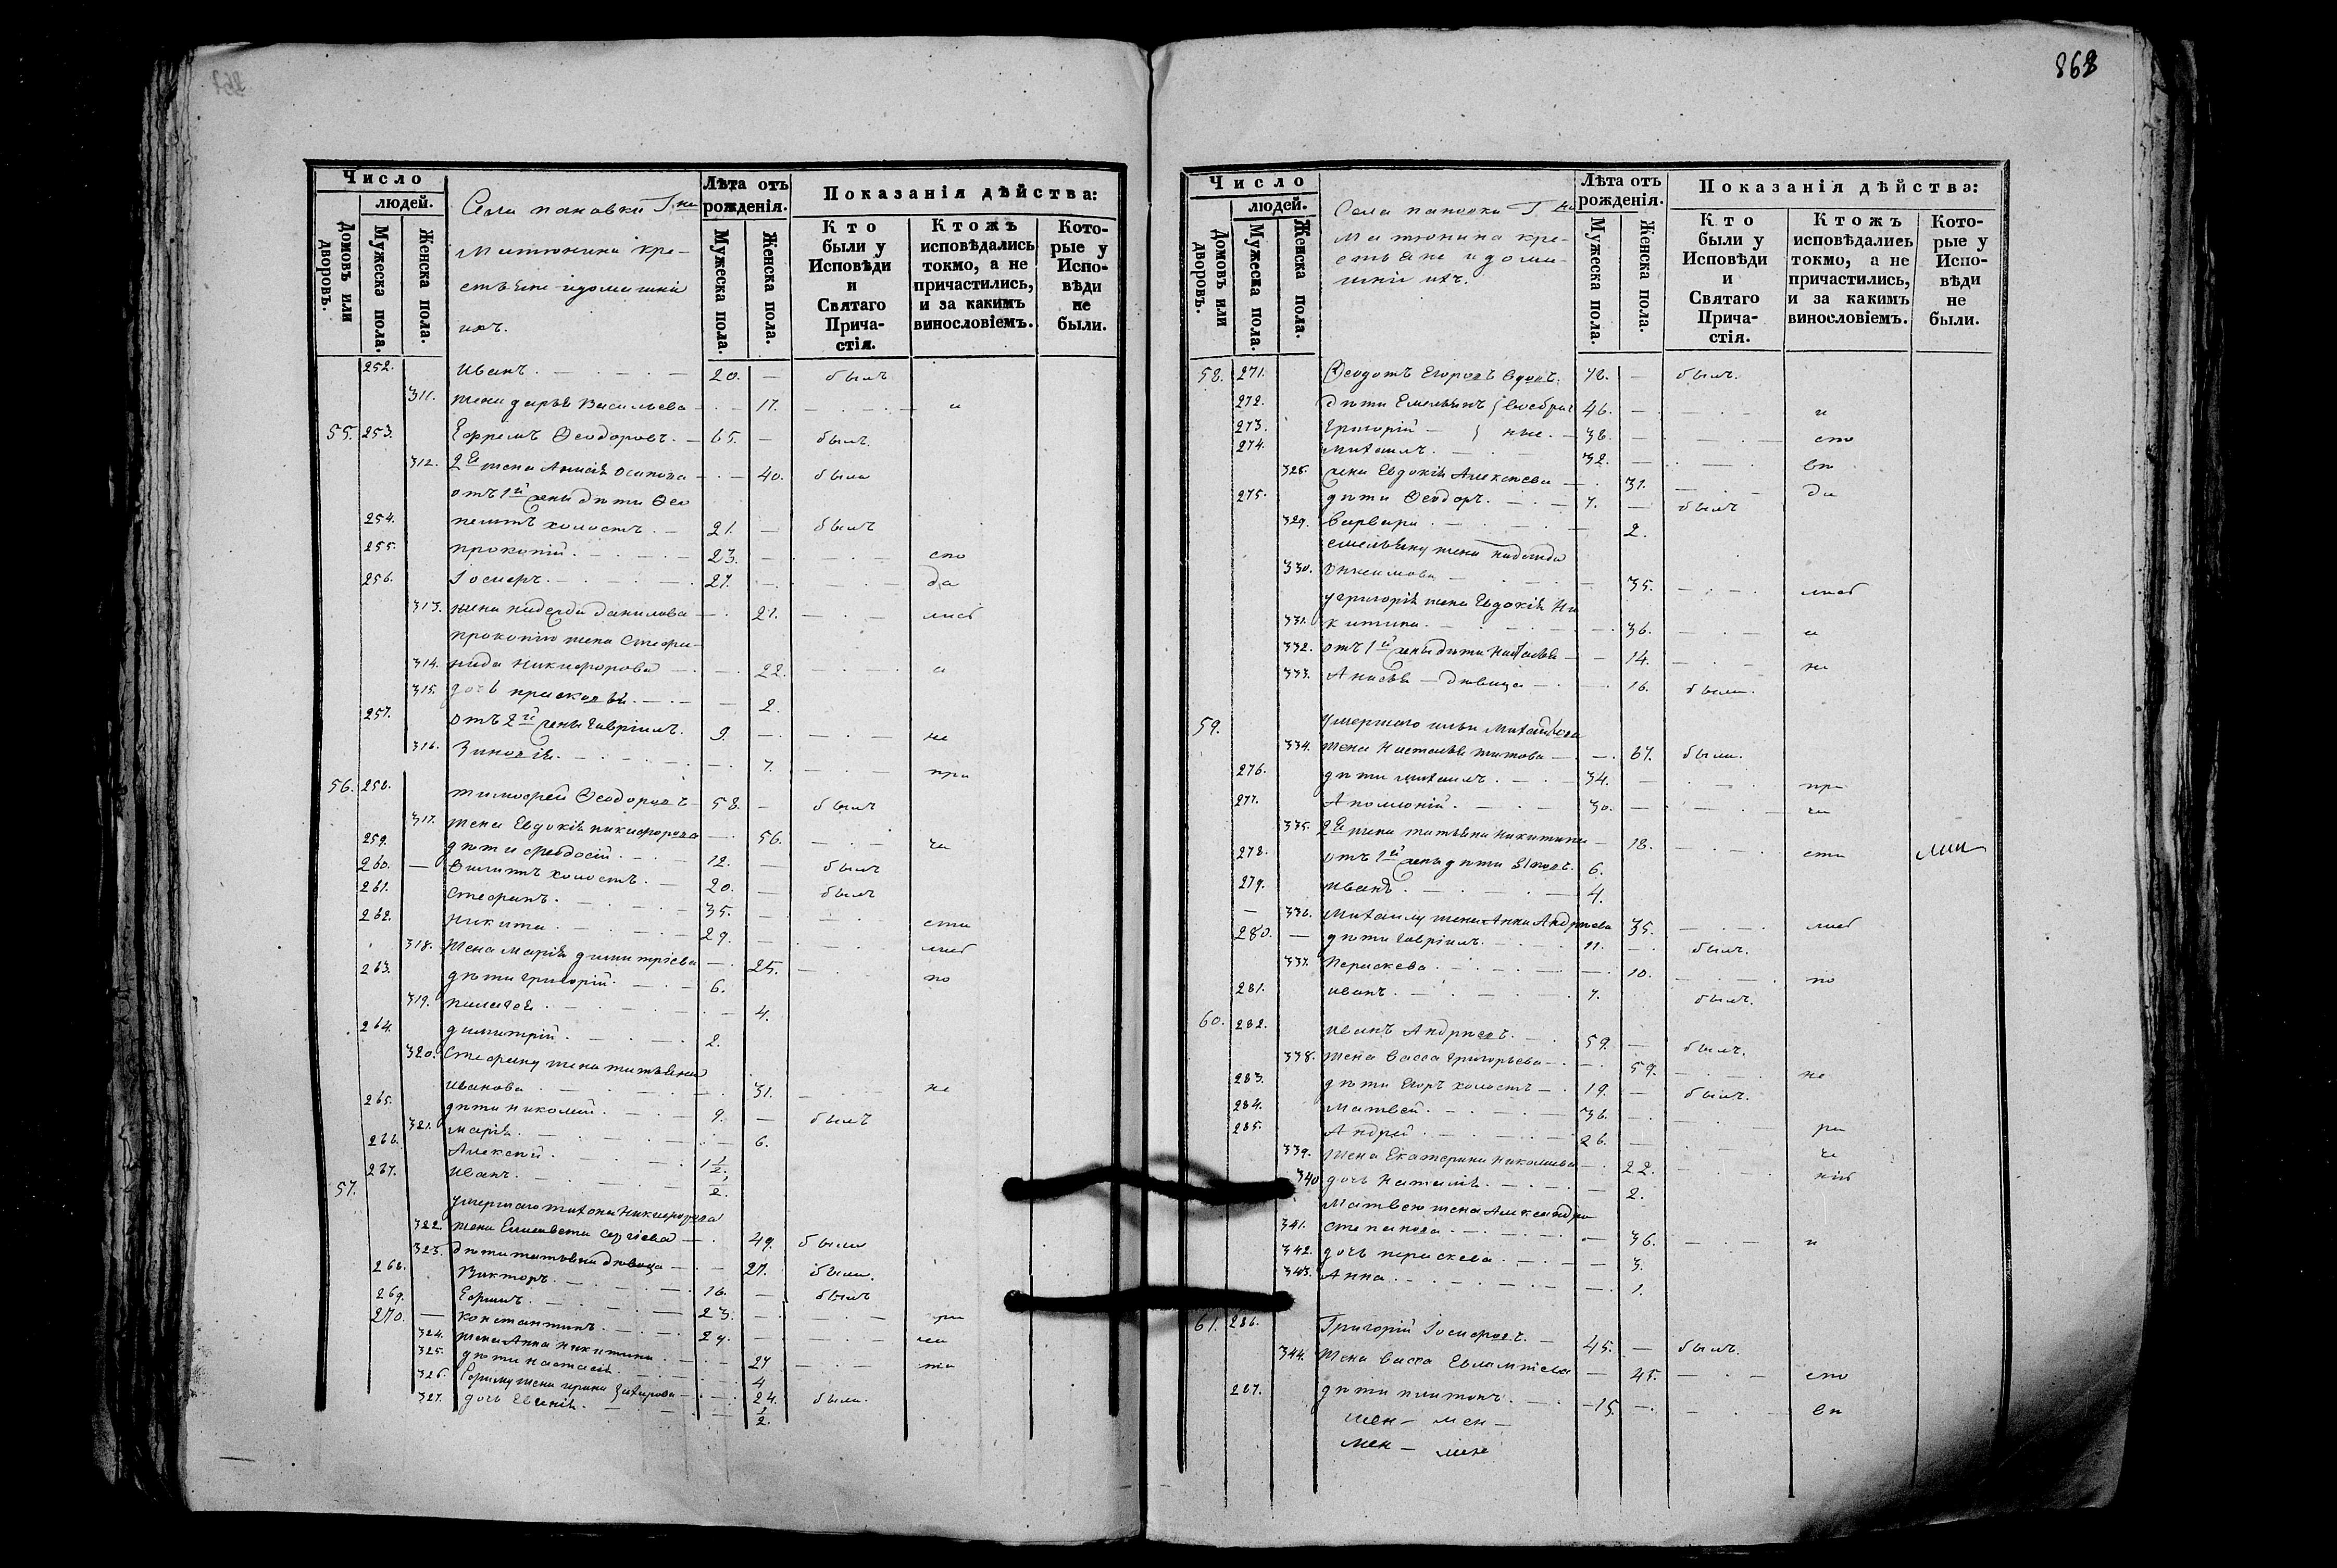 868
Число
людей.
Домовъ или дворовъ.
Мужеска пола.
Женска пола.
Лѣта отъ рожденія.
Мужеска пола.
Женска пола.
Показанія дѣйства:
Кто были у Исповѣди и Святаго Причастія.
Ктожъ исповѣдались токмо, а не причастились, и за какимъ винословіемъ.
Которые у Исповѣди не были.
Села пановки Гна
Матюнина кре-
стьяне и домашніи
ихъ.
252. Иванъ 20. — былъ
311. жена дарья Васильева 17. и
55. 253. Ефремъ Ѳеодоровъ. 65. — былъ
312. 2я жена Анисія Осипова 40. была
отъ 1й жены дѣти Ѳео
254. пемптъ холостъ. 21. — былъ
255. прокопій 23. — спо
256. Іосифъ. 27. — да
313. жена надежда данилова 27. лись
прокопію жена Стефа-
314. нида Никифорова 22. и
315. дочь прасковья. 2.
257. отъ 2й жены гавріилъ. 9. — не
316. Зиновія. 7. при
56. 258. тимофей Ѳеодоровъ 58. — былъ
317. жена Евдокія никифорова 56. ча
259. дѣти феодосій 12. — былъ
260. — Филипъ холостъ. 20. — былъ
261. Стефанъ. 35. — сти
262. Никита 29. — лись
318. Жена Марія димитріева 25. по
263. дѣти григорій. 6.
319. пелагея 4.
264. димитрій 2.
320. Стефану жена татьяна
Иванова 31. не
265. дѣти николай. 9. — былъ
321. марія. 6.
266. Алексѣй 1 1/2.
267. Иванъ. 1/2.
57. умершаго тихона Никифорова
322. жена Елисавета Сергіева 49. была
323. дѣти татьяна дѣвица 21. была.
268. Викторъ. 16. — былъ
269. Ефимъ. 23. — при
270. — Константинъ. 29. — ча
324. жена Анна Никитина 27 ти
325. дѣти настасія 4
326. Ефиму жена ирина захарова 24. была.
327. дочь Евгенія. 1/2.
Число
людей.
Домовъ или дворовъ.
Мужеска пола.
Женска пола.
Лѣта отъ рожденія.
Мужеска пола.
Женска пола.
Показанія дѣйства:
Кто были у Исповѣди и Святаго Причастія.
Ктожъ исповѣдались токмо, а не причастились, и за какимъ винословіемъ.
Которые у Исповѣди не были.
Села пановки Гна
Матюнина кре-
стьяне и дома-
шніи ихъ.
58. 271. Ѳеодотъ Егоровъ вдовъ. 78. — былъ.
272. дѣти Емельянъ 46. — и
273. Григорій 38. — спо
274. михаилъ. 32. — вѣ
328. жена Евдокія Алексѣева 31. да
275. дѣти Ѳеодоръ. 7. — былъ
329. варвара 2.
емельяну жена надежда
330. Онисимова 35. лись
григорія жена Евдокія Ни
331. китина. 36. и
332. отъ 1й жены дѣти Наталья 14. не
333. Анисья — дѣвица 16. была.
59. умершаго ильи Михайлова
334. жена Настасья титова 67. была.
276. дѣти михаилъ. 34. при
277. Аполлоній. 30. — ча
335. 2я жена татьяна никитина 18. сти
278. отъ 1й жены дѣти 6. лись
279. иванъ 4.
336. Михаилу жена Анна Андреева 35. лись
280. — дѣти гавріилъ. 11. былъ.
337. Параскева 10. по
281. иванъ. 7. былъ.
60. 282. иванъ Андреевъ. 59. — былъ.
338. жена васса григорьева 59. не
283. дѣти Егоръ холостъ 19. — былъ.
284. матвей. 36. ра
285. Андрей 26. — че
339. жена Екатерина николаева 22. ніи
340 дочь Наталія. 2.
Матвею жена Александра
341. степанова 36. и
342. дочь параскева 3.
343. Анна 1.
61. 286. Григорій Іосифовъ. 45. — былъ.
344. жена васса Евлампіева 45. спо
287. дѣти платонъ. 15. — вѣ
мен — мен —
мен — мен